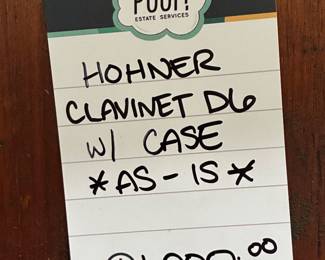 POOF!
ESTATE SERVICES
HOHNER
CLAVINET D6
W/ CASE
*AS-IS*
.00